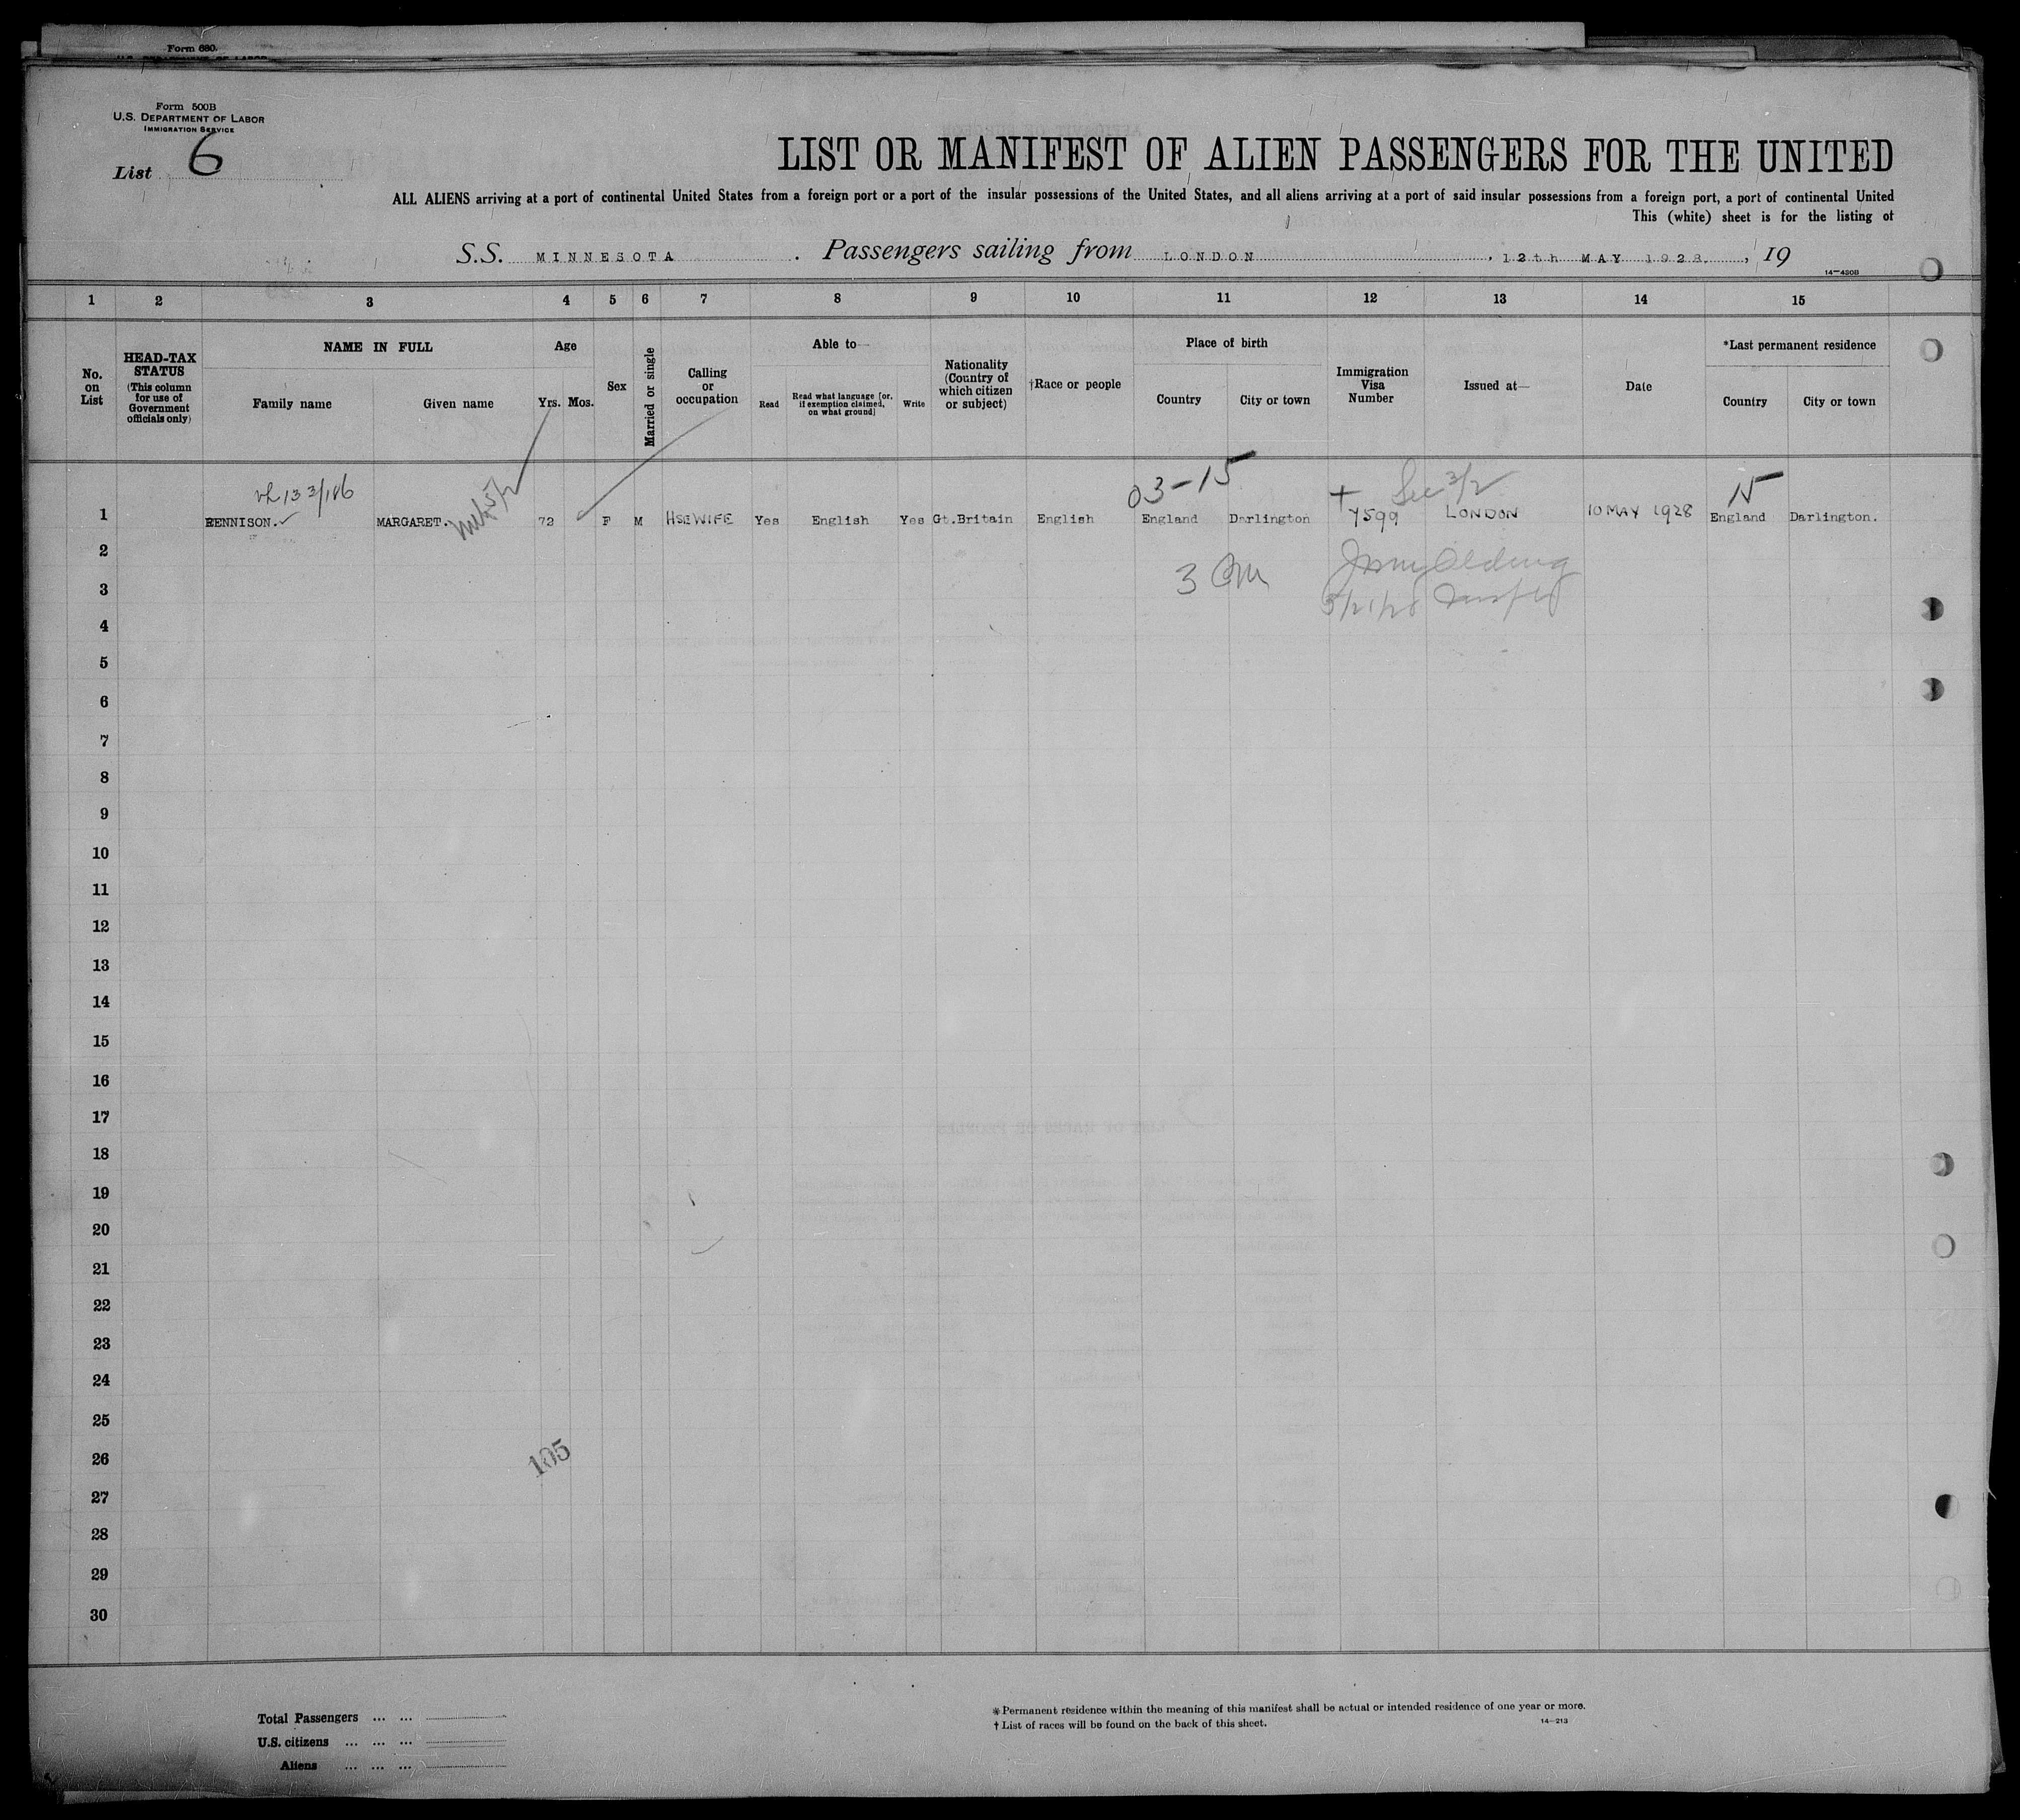 Form 680.
U.S. DEPARTMENT OF LABOR
Form 500B
U.S. DEPARTMENT OF LABOR
IMMIGRATION SERVICE
List 6
LIST OR MANIFEST OF ALIEN PASSENGERS FOR THE UNITED
ALL ALIENS arriving at a port of continental United States from a foreign port or a port of the insular possessions of the United States, and all aliens arriving at a port of said insular possessions from a foreign port, a port of continental United
This (white) sheet is for the listing of
S.S. MINNESOTA. Passengers sailing from LONDON, 12th MAY 1928., 19
14-430B
1 2 3 4 5 6 7 8 9 10 11 12 13 14 15
No. on List
HEAD-TAX STATUS (This column for use of Government officials only)
NAME IN FULL
Family name
Given name
Age
Yrs. Mos.
Sex
Married or single
Calling or occupation
Able to—
Read
Read what language [or, if exemption claimed, on what ground]
Write
Nationality (Country of which citizen or subject)
†Race or people
Place of birth
Country
City or town
Immigration Visa Number
Issued at—
Date
*Last permanent residence
Country
City or town
133/186
03-15
15
1 RENNISON. MARGARET. 72 F M HSEWIFE Yes English Yes Gt.Britain English England Darlington 7599 LONDON 10 MAY 1928 England Darlington.
2
3
3
5/21/28
4
5
6
7
8
9
10
11
12
13
14
15
16
17
18
19
20
21
22
23
24
25
26
105
27
28
29
30
Total Passengers ... ...
U.S. citizens ... ... ...
Aliens ... ... ...
*Permanent residence within the meaning of this manifest shall be actual or intended residence of one year or more.
†List of races will be found on the back of this sheet.
14-213